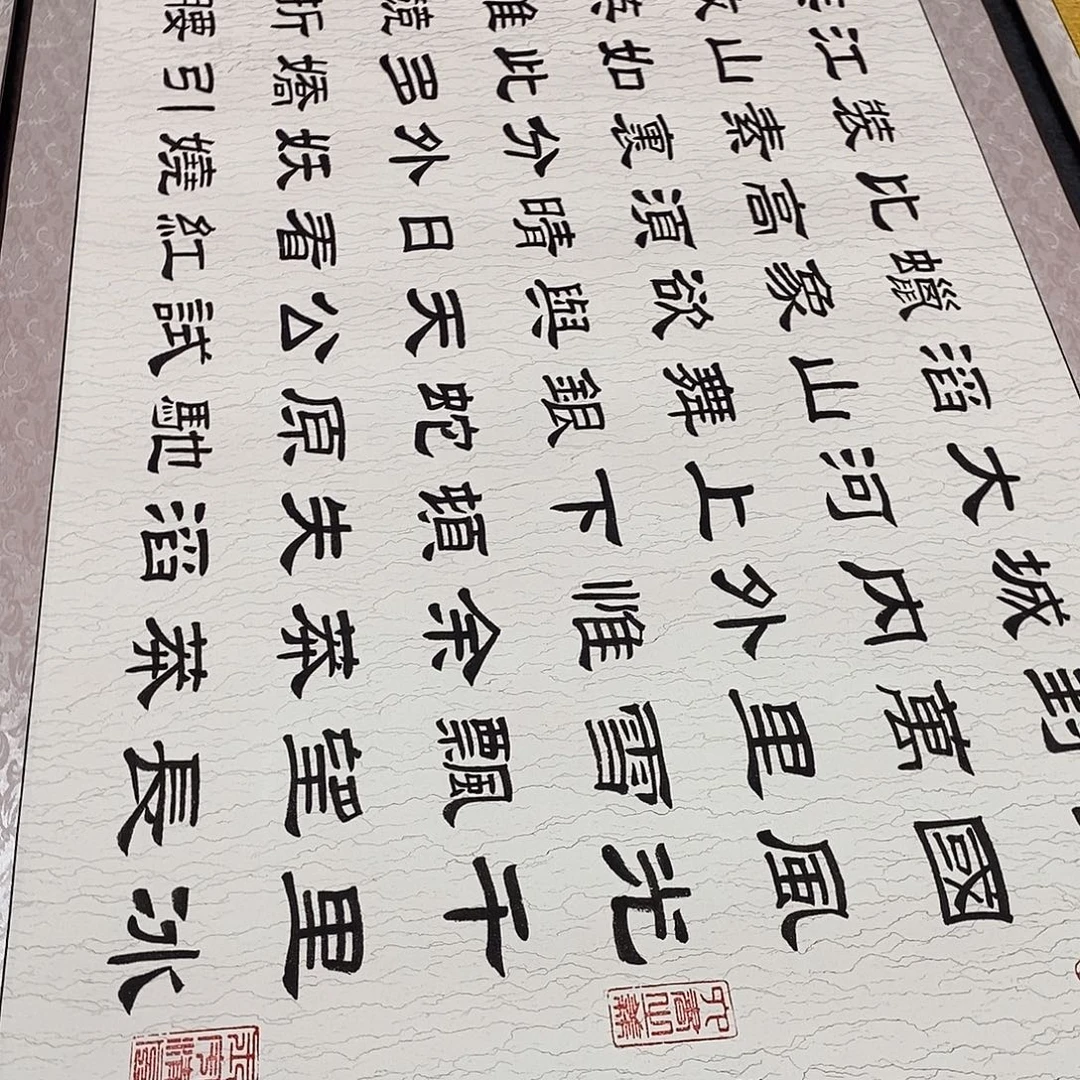 國風光千里冰
封萬里雪飄望長
城內外惟余莽莽
大河上下頓失滔
滔山舞銀蛇原馳
蠟象欲與天公試
比高須晴日看紅
裝素裹分外妖嬈
江山如此多嬌引
競折腰